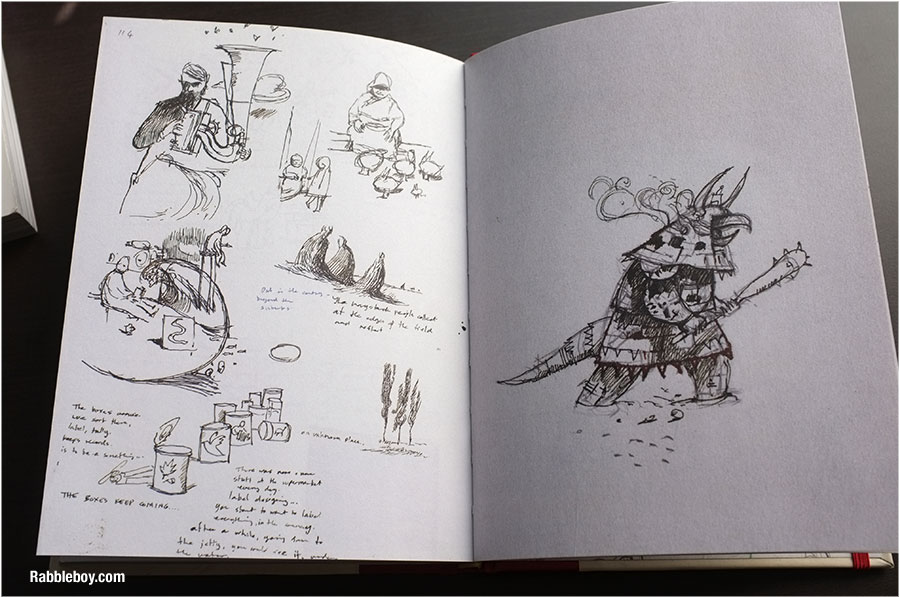 114
Out in the country...
beyond the
The people collect
at the edge of the field
and
The boxes
label, tally.
keeps records.
is to be a something...
an unknown place.
THE BOXES KEEP COMING....
There was more & more
stuff at the supermarket
every day
label designing...
you start to want to label
everything, in the
after a while, going down to
the jetty, you could see it, under
the water
Rabbleboy.com